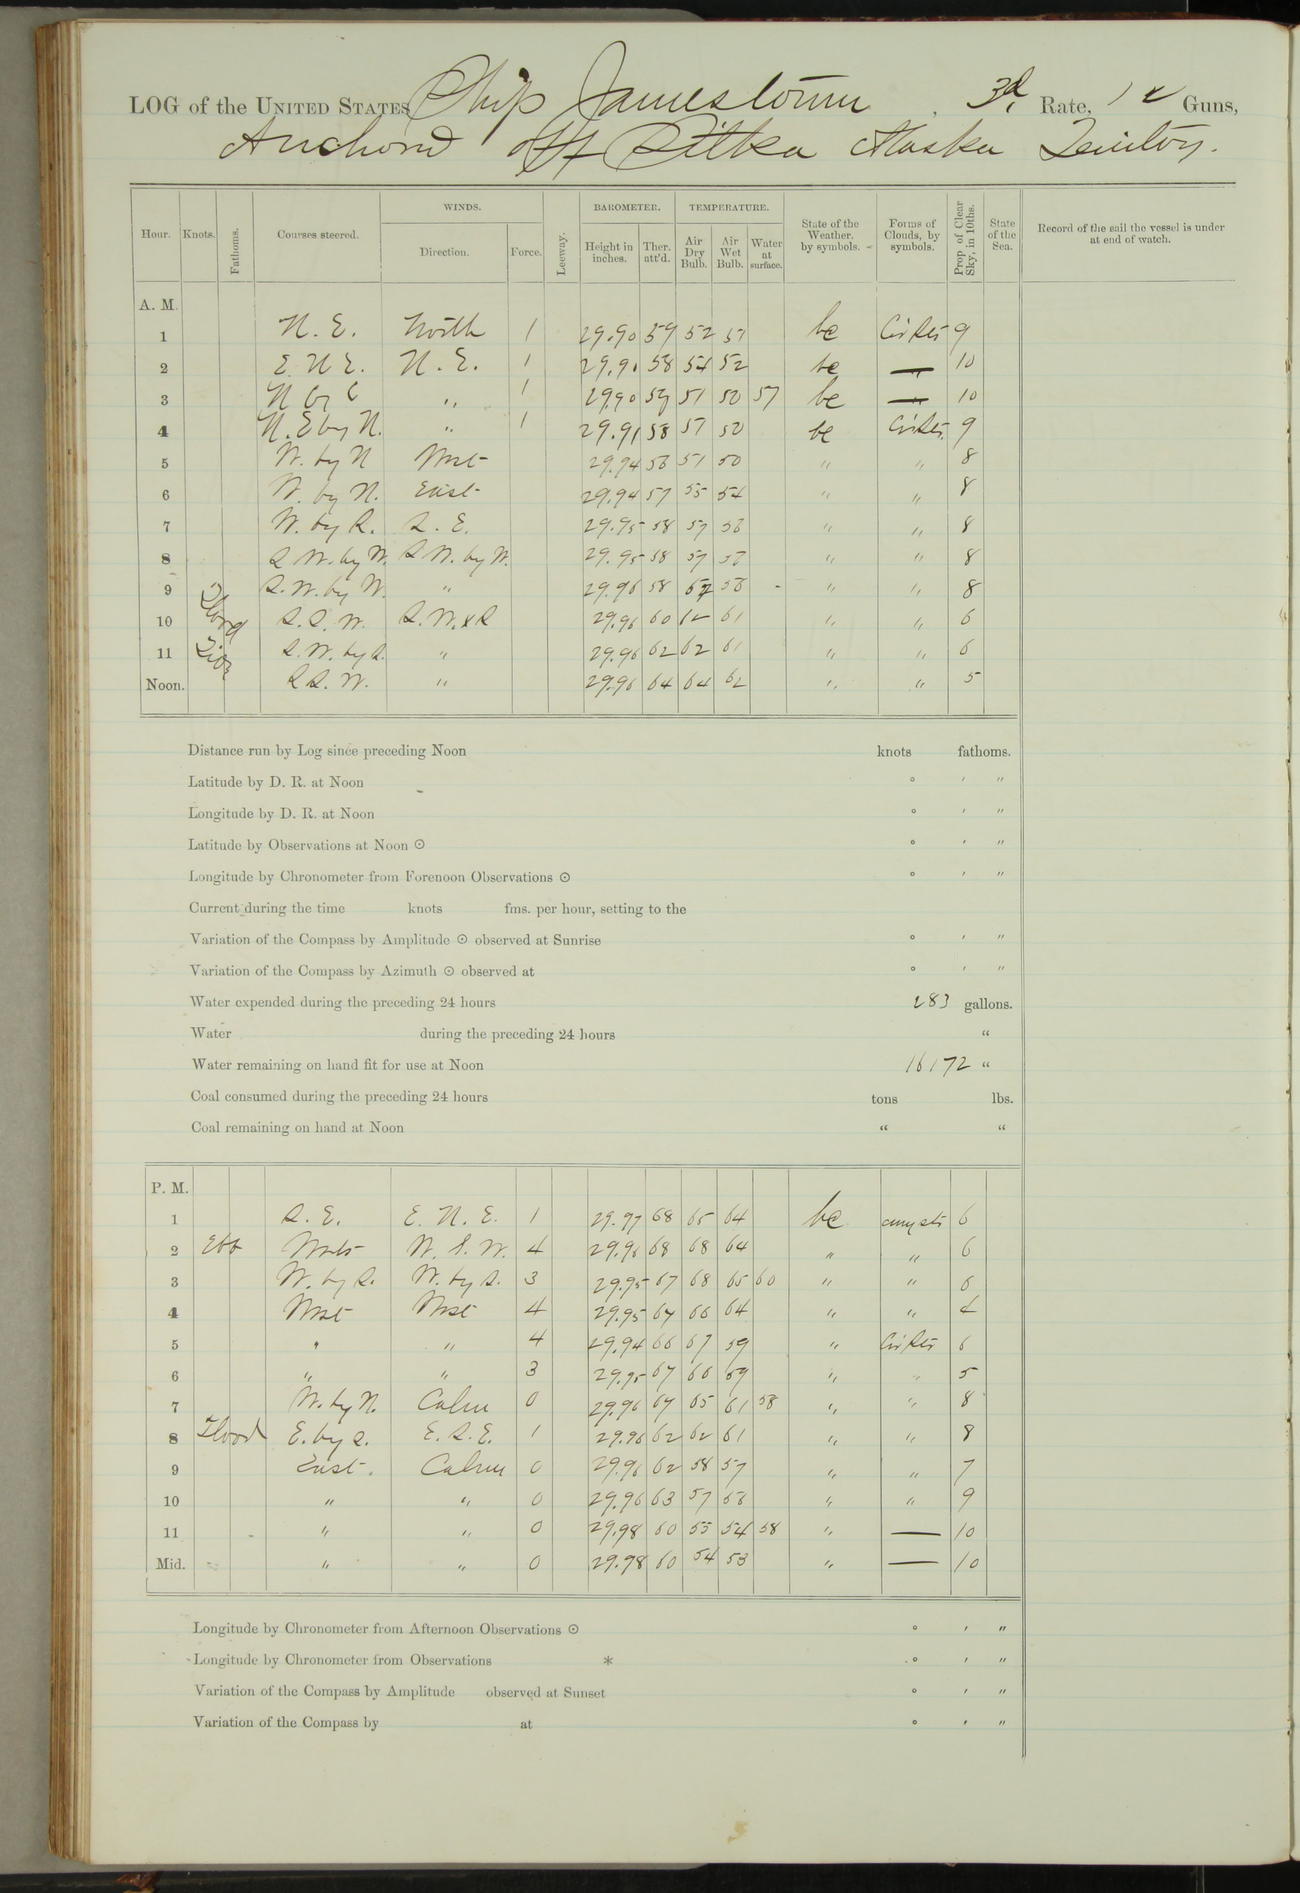 LOG of the UNITED STATES Ship Jamestown, 3d Rate, 12 Guns,
Anchored off Sitka Alaska Territory.
Hour. Knots. Fathoms. Courses steered. WINDS. Direction. Force. Leeway. BAROMETER. Height in inches. Ther. att'd. TEMPERATURE. Air Dry Bulb. Air Wet Bulb. Water at surface. State of the Weather. by symbols. Forms of Clouds, by symbols. Prop of Clear Sky, in 10ths. State of the Sea. Record of the sail the vessel is under at end of watch.
A. M.
1 N. E. North 1 29.90 59 52 51 bc Cir Str 9
2 E. N. E. N. E. 1 29.91 58 54 52 bc — 10
3 N by E " 1 29.90 59 51 50 57 bc — 10
4 N. E by N. " 1 29.91 58 51 50 bc Cir Str. 9
5 W. by N West 29.94 56 51 50 " " 8
6 W. by N. East 29.94 57 55 54 " " 8
7 W. by S. S. E. 29.95 58 57 56 " " 8
8 S W. by W. S W. by W. 29.95 58 57 " " 8
9 S. W. by W. " 29.96 58 56 " " 8
10 Flood S. S. W. S. W. x S 29.96 60 62 61 " " 6
11 Tide S. W. by S. " 29.96 62 62 61 " " 6
Noon. S S. W. " 29.96 64 64 62 " " 5
Distance run by Log since preceding Noon knots fathoms.
Latitude by D. R. at Noon ° ′ ″
Longitude by D. R. at Noon ° ′ ″
Latitude by Observations at Noon ⊙ ° ′ ″
Longitude by Chronometer from Forenoon Observations ⊙ ° ′ ″
Current during the time knots fms. per hour, setting to the
Variation of the Compass by Amplitude ⊙ observed at Sunrise ° ′ ″
Variation of the Compass by Azimuth ⊙ observed at ° ′ ″
Water expended during the preceding 24 hours 283 gallons.
Water during the preceding 24 hours "
Water remaining on hand fit for use at Noon 16172 "
Coal consumed during the preceding 24 hours tons lbs.
Coal remaining on hand at Noon " "
P. M.
1 S. E. E. N. E. 1 29.97 68 65 64 bc cum str 6
2 Ebb West W. S. W. 4 29.96 68 68 64 " " 6
3 W. by S. W. by S. 3 29.95 67 68 65 60 " " 6
4 West West 4 29.95 67 66 64 " " 4
5 " " 4 29.94 66 67 59 " Cir Str 6
6 " " 3 29.95 67 66 59 " " 5
7 W. by N. Calm 0 29.96 64 65 61 58 " " 8
8 Flood E. by S. E. S. E. 1 29.96 62 62 61 " " 8
9 East. Calm 0 29.96 62 58 57 " " 7
10 " " 0 29.96 63 57 56 " " 9
11 " " 0 29.98 60 55 54 58 " — 10
Mid. " " 0 29.98 60 54 53 " — 10
Longitude by Chronometer from Afternoon Observations ⊙ ° ′ ″
Longitude by Chronometer from Observations * ° ′ ″
Variation of the Compass by Amplitude observed at Sunset ° ′ ″
Variation of the Compass by at ° ′ ″